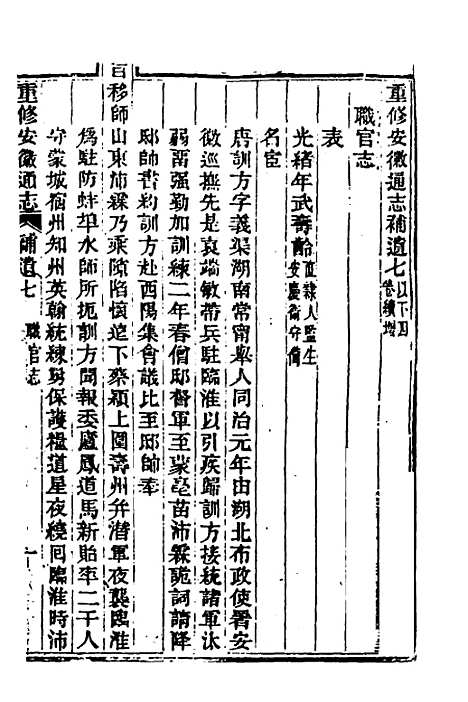 重修安徽通志補遺七以下四卷續增
職官志
表
光緒年武壽齡直隸人監生安慶衛守備
名宦
唐訓方字義渠湖南常甯舉人同治元年由湖北布政使署安
徽巡撫先是袁端敏帶兵駐臨淮以引疾歸訓方接統諸軍汰
弱留强勤加訓練二年春僧邸督軍至蒙亳苗沛霖詭詞請降
邸帥答約訓方赴酉陽集會議比至邸帥奉
旨移師山東沛霖乃乘隙陷懷遠下蔡潁上圍壽州并潛軍夜襲臨淮
爲駐防蚌埠水師所扼訓方聞報委廬鳳道馬新貽率二千人
守蒙城宿州知州英翰統練勇保護糧道星夜繞回臨淮時沛
重修安徽通志 補遺七 職官志 一